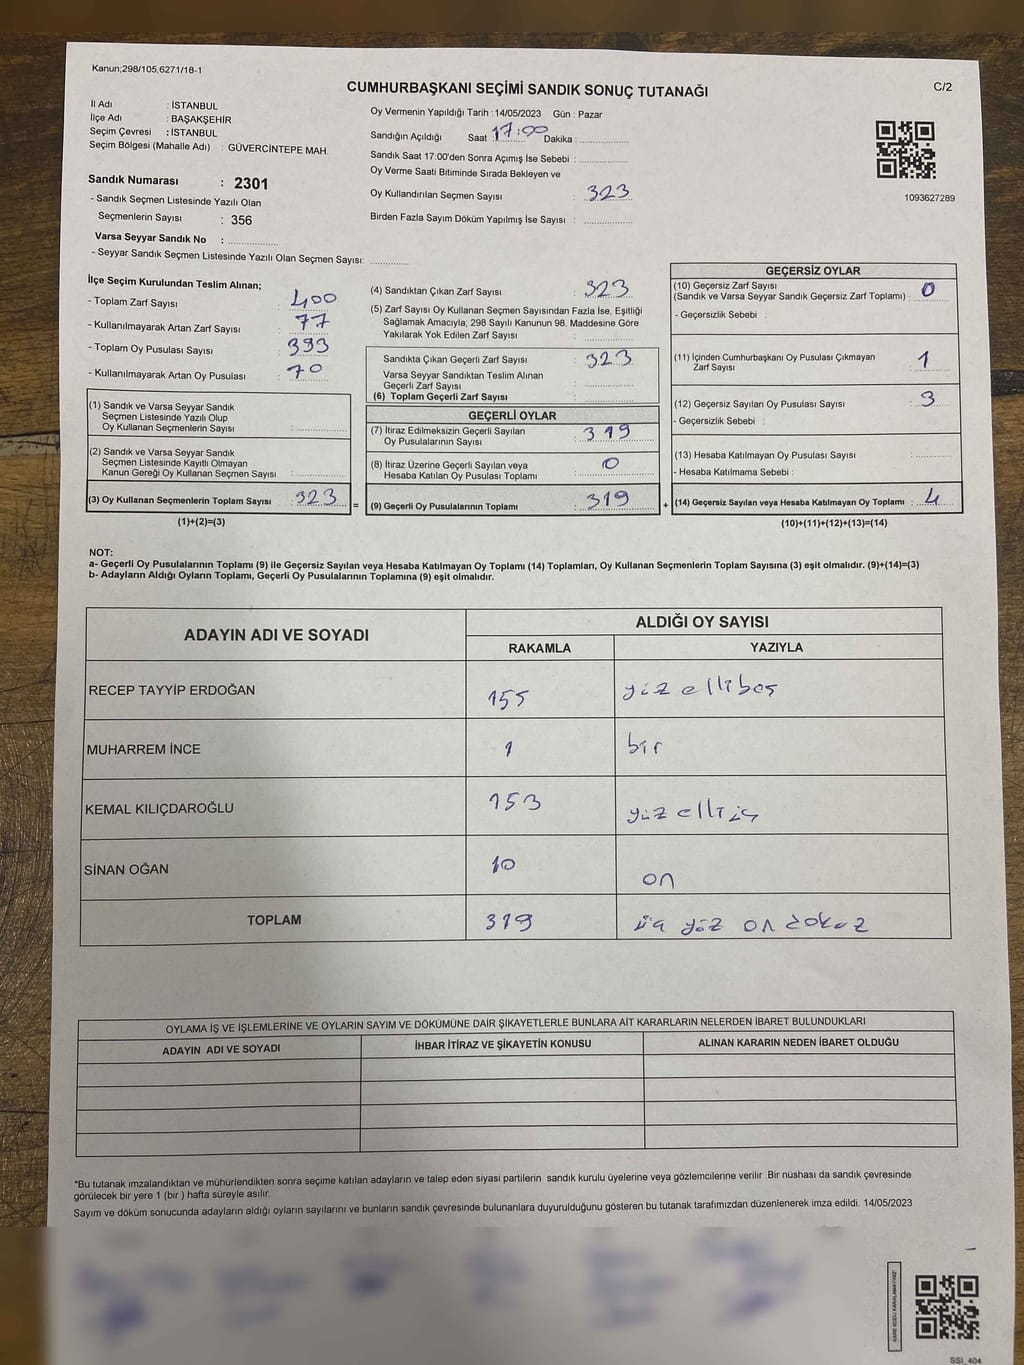 Kanun;298/105,6271/18-1
CUMHURBAŞKANI SEÇİMİ SANDIK SONUÇ TUTANAĞI
C/2
İl Adı : İSTANBUL
İlçe Adı : BAŞAKŞEHİR
Seçim Çevresi : İSTANBUL
Seçim Bölgesi (Mahalle Adı) : GÜVERCİNTEPE MAH.
Sandık Numarası : 2301
- Sandık Seçmen Listesinde Yazılı Olan
Seçmenlerin Sayısı : 356
Varsa Seyyar Sandık No :
- Seyyar Sandık Seçmen Listesinde Yazılı Olan Seçmen Sayısı:
Oy Vermenin Yapıldığı Tarih : 14/05/2023 Gün : Pazar
Sandığın Açıldığı Saat 17:00 Dakika :
Sandık Saat 17:00'den Sonra Açımış İse Sebebi :
Oy Verme Saati Bitiminde Sırada Bekleyen ve
Oy Kullandırılan Seçmen Sayısı : 323
Birden Fazla Sayım Döküm Yapılmış İse Sayısı :
1093627289
İlçe Seçim Kurulundan Teslim Alınan;
- Toplam Zarf Sayısı : 400
- Kullanılmayarak Artan Zarf Sayısı : 77
- Toplam Oy Pusulası Sayısı : 393
- Kullanılmayarak Artan Oy Pusulası : 70
(1) Sandık ve Varsa Seyyar Sandık
Seçmen Listesinde Yazılı Olup
Oy Kullanan Seçmenlerin Sayısı :
(2) Sandık ve Varsa Seyyar Sandık
Seçmen Listesinde Kayıtlı Olmayan
Kanun Gereği Oy Kullanan Seçmen Sayısı :
(3) Oy Kullanan Seçmenlerin Toplam Sayısı : 323
(1)+(2)=(3)
=
(4) Sandıktan Çıkan Zarf Sayısı : 323
(5) Zarf Sayısı Oy Kullanan Seçmen Sayısından Fazla İse, Eşitliği
Sağlamak Amacıyla; 298 Sayılı Kanunun 98. Maddesine Göre
Yakılarak Yok Edilen Zarf Sayısı :
Sandıkta Çıkan Geçerli Zarf Sayısı : 323
Varsa Seyyar Sandıktan Teslim Alınan
Geçerli Zarf Sayısı :
(6) Toplam Geçerli Zarf Sayısı :
GEÇERLİ OYLAR
(7) İtiraz Edilmeksizin Geçerli Sayılan
Oy Pusulalarının Sayısı : 319
(8) İtiraz Üzerine Geçerli Sayılan veya
Hesaba Katılan Oy Pusulası Toplamı : 0
(9) Geçerli Oy Pusulalarının Toplamı : 319
+
GEÇERSİZ OYLAR
(10) Geçersiz Zarf Sayısı
(Sandık ve Varsa Seyyar Sandık Geçersiz Zarf Toplamı) : 0
- Geçersizlik Sebebi :
(11) İçinden Cumhurbaşkanı Oy Pusulası Çıkmayan
Zarf Sayısı : 1
(12) Geçersiz Sayılan Oy Pusulası Sayısı : 3
- Geçersizlik Sebebi :
(13) Hesaba Katılmayan Oy Pusulası Sayısı :
- Hesaba Katılmama Sebebi :
(14) Geçersiz Sayılan veya Hesaba Katılmayan Oy Toplamı : 4
(10)+(11)+(12)+(13)=(14)
NOT:
a- Geçerli Oy Pusulalarının Toplamı (9) ile Geçersiz Sayılan veya Hesaba Katılmayan Oy Toplamı (14) Toplamları, Oy Kullanan Seçmenlerin Toplam Sayısına (3) eşit olmalıdır. (9)+(14)=(3)
b- Adayların Aldığı Oyların Toplamı, Geçerli Oy Pusulalarının Toplamına (9) eşit olmalıdır.
ADAYIN ADI VE SOYADI
ALDIĞI OY SAYISI
RAKAMLA YAZIYLA
RECEP TAYYİP ERDOĞAN 155 yüz elli beş
MUHARREM İNCE 1 bir
KEMAL KILIÇDAROĞLU 153 yüz elli üç
SİNAN OĞAN 10 on
TOPLAM 319 üç yüz on dokuz
OYLAMA İŞ VE İŞLEMLERİNE VE OYLARIN SAYIM VE DÖKÜMÜNE DAİR ŞİKAYETLERLE BUNLARA AİT KARARLARIN NELERDEN İBARET BULUNDUKLARI
ADAYIN ADI VE SOYADI İHBAR İTİRAZ VE ŞİKAYETİN KONUSU ALINAN KARARIN NEDEN İBARET OLDUĞU
*Bu tutanak imzalandıktan ve mühürlendikten sonra seçime katılan adayların ve talep eden siyasi partilerin sandık kurulu üyelerine veya gözlemcilerine verilir .Bir nüshası da sandık çevresinde
görülecek bir yere 1 (bir ) hafta süreyle asılır.
Sayım ve döküm sonucunda adayların aldığı oyların sayılarını ve bunların sandık çevresinde bulunanlara duyurulduğunu gösteren bu tutanak tarafımızdan düzenlenerek imza edildi. 14/05/2023
SSI_404